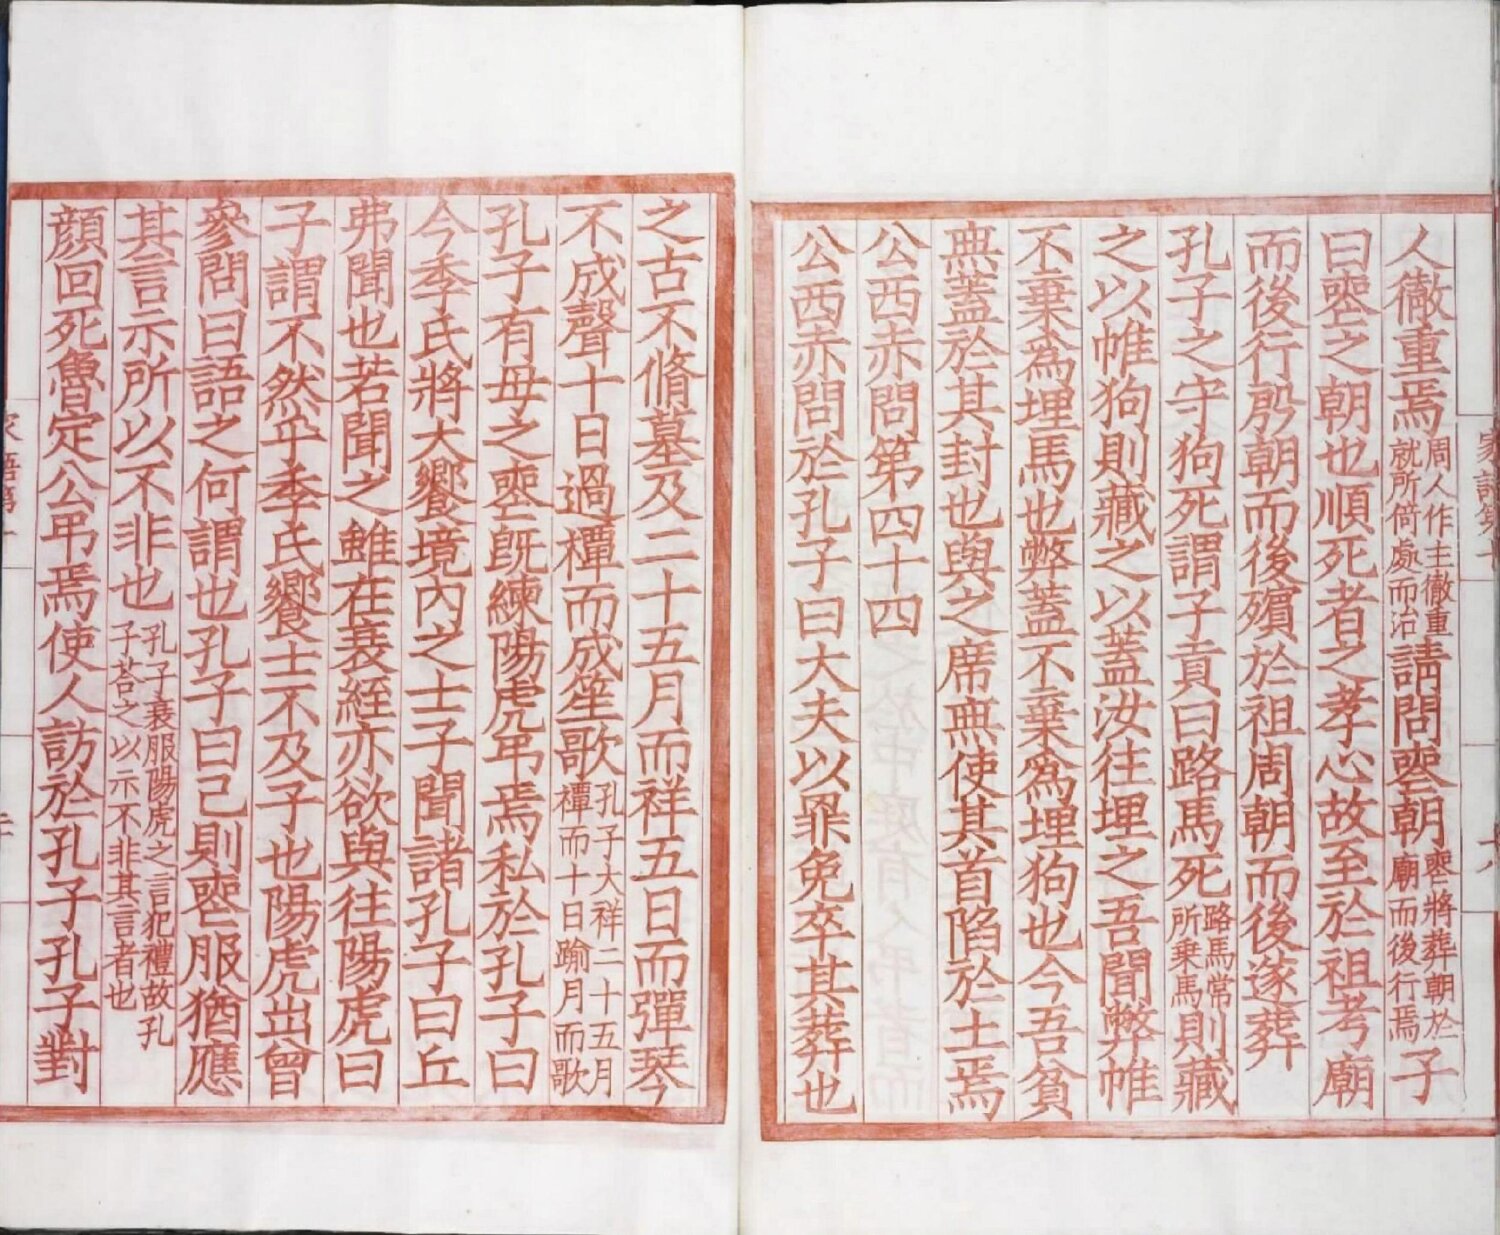 人徹重焉周人作主徹重就所倚處而治請問喪朝喪將葬朝於廟而後行焉子
曰喪之朝也順死者之孝心故至於祖考廟
而後行殷朝而後殯於祖周朝而後遂葬
孔子之守狗死謂子貢曰路馬死路馬常所乗馬則藏
之以帷狗則藏之以蓋汝往埋之吾聞弊帷
不棄為埋馬也弊蓋不棄為埋狗也今吾貧
無蓋於其封也與之席無使其首陷於土焉
公西赤問第四十四
公西赤問於孔子曰大夫以罪免卒其葬也
之古不脩墓及二十五月而祥五日而彈琴
不成聲十日過禫而成笙歌孔子大祥二十五月禫而十日踰月而歌
孔子有母之喪既練陽虎弔焉私於孔子曰
今季氏將大饗境內之士子聞諸孔子曰丘
弗聞也若聞之雖在衰絰亦欲與往陽虎曰
子謂不然乎季氏饗士不及子也陽虎出曾
參問曰語之何謂也孔子曰己則喪服猶應
其言示所以不非也孔子衰服陽虎之言犯禮故孔子荅之以示不非其言者也
顔回死魯定公弔焉使人訪於孔子孔子對